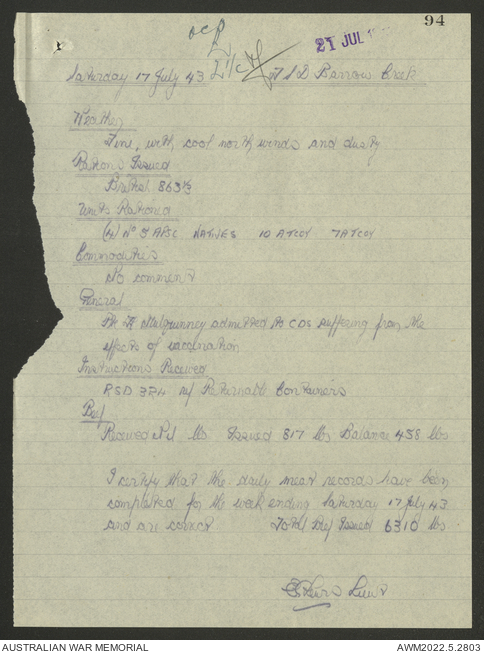 94
21 JUL
Saturday 17 July 43 FSD Barrow Creek
Weather
Fine, with cool north winds and dusty
Rations Issued
British 863½
Units Rationed
(4) No 5 APSC NATIVES 10 ATCOY 7 ATCOY
Commodities
No comment
General
Pte admitted to CDS suffering from the
effects of vaccination
Instructions Received
RSD 324 Returnable Containers
Beef
Received Nil lbs Issued 817 lbs Balance 458 lbs
I certify that the daily meat records have been
completed for the week ending Saturday 17 July 43
and are correct Total Beef Issued 6310 lbs
Lieut
AUSTRALIAN WAR MEMORIAL AWM2022.5.2803